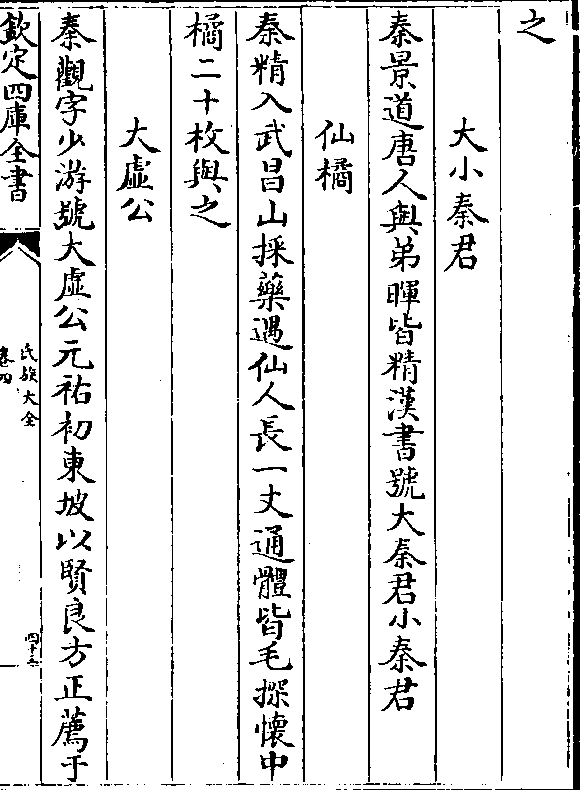 之
大小秦君
秦景道唐人與弟暉皆精漢書號大秦君小秦君
仙橘
秦精入武昌山採藥遇仙人長一丈通體皆毛探懷中
橘二十枚與之
大虛公
秦觀字少游號大虛公元祐初東坡以賢良方正薦于
欽定四庫全書
氏族大全
卷四